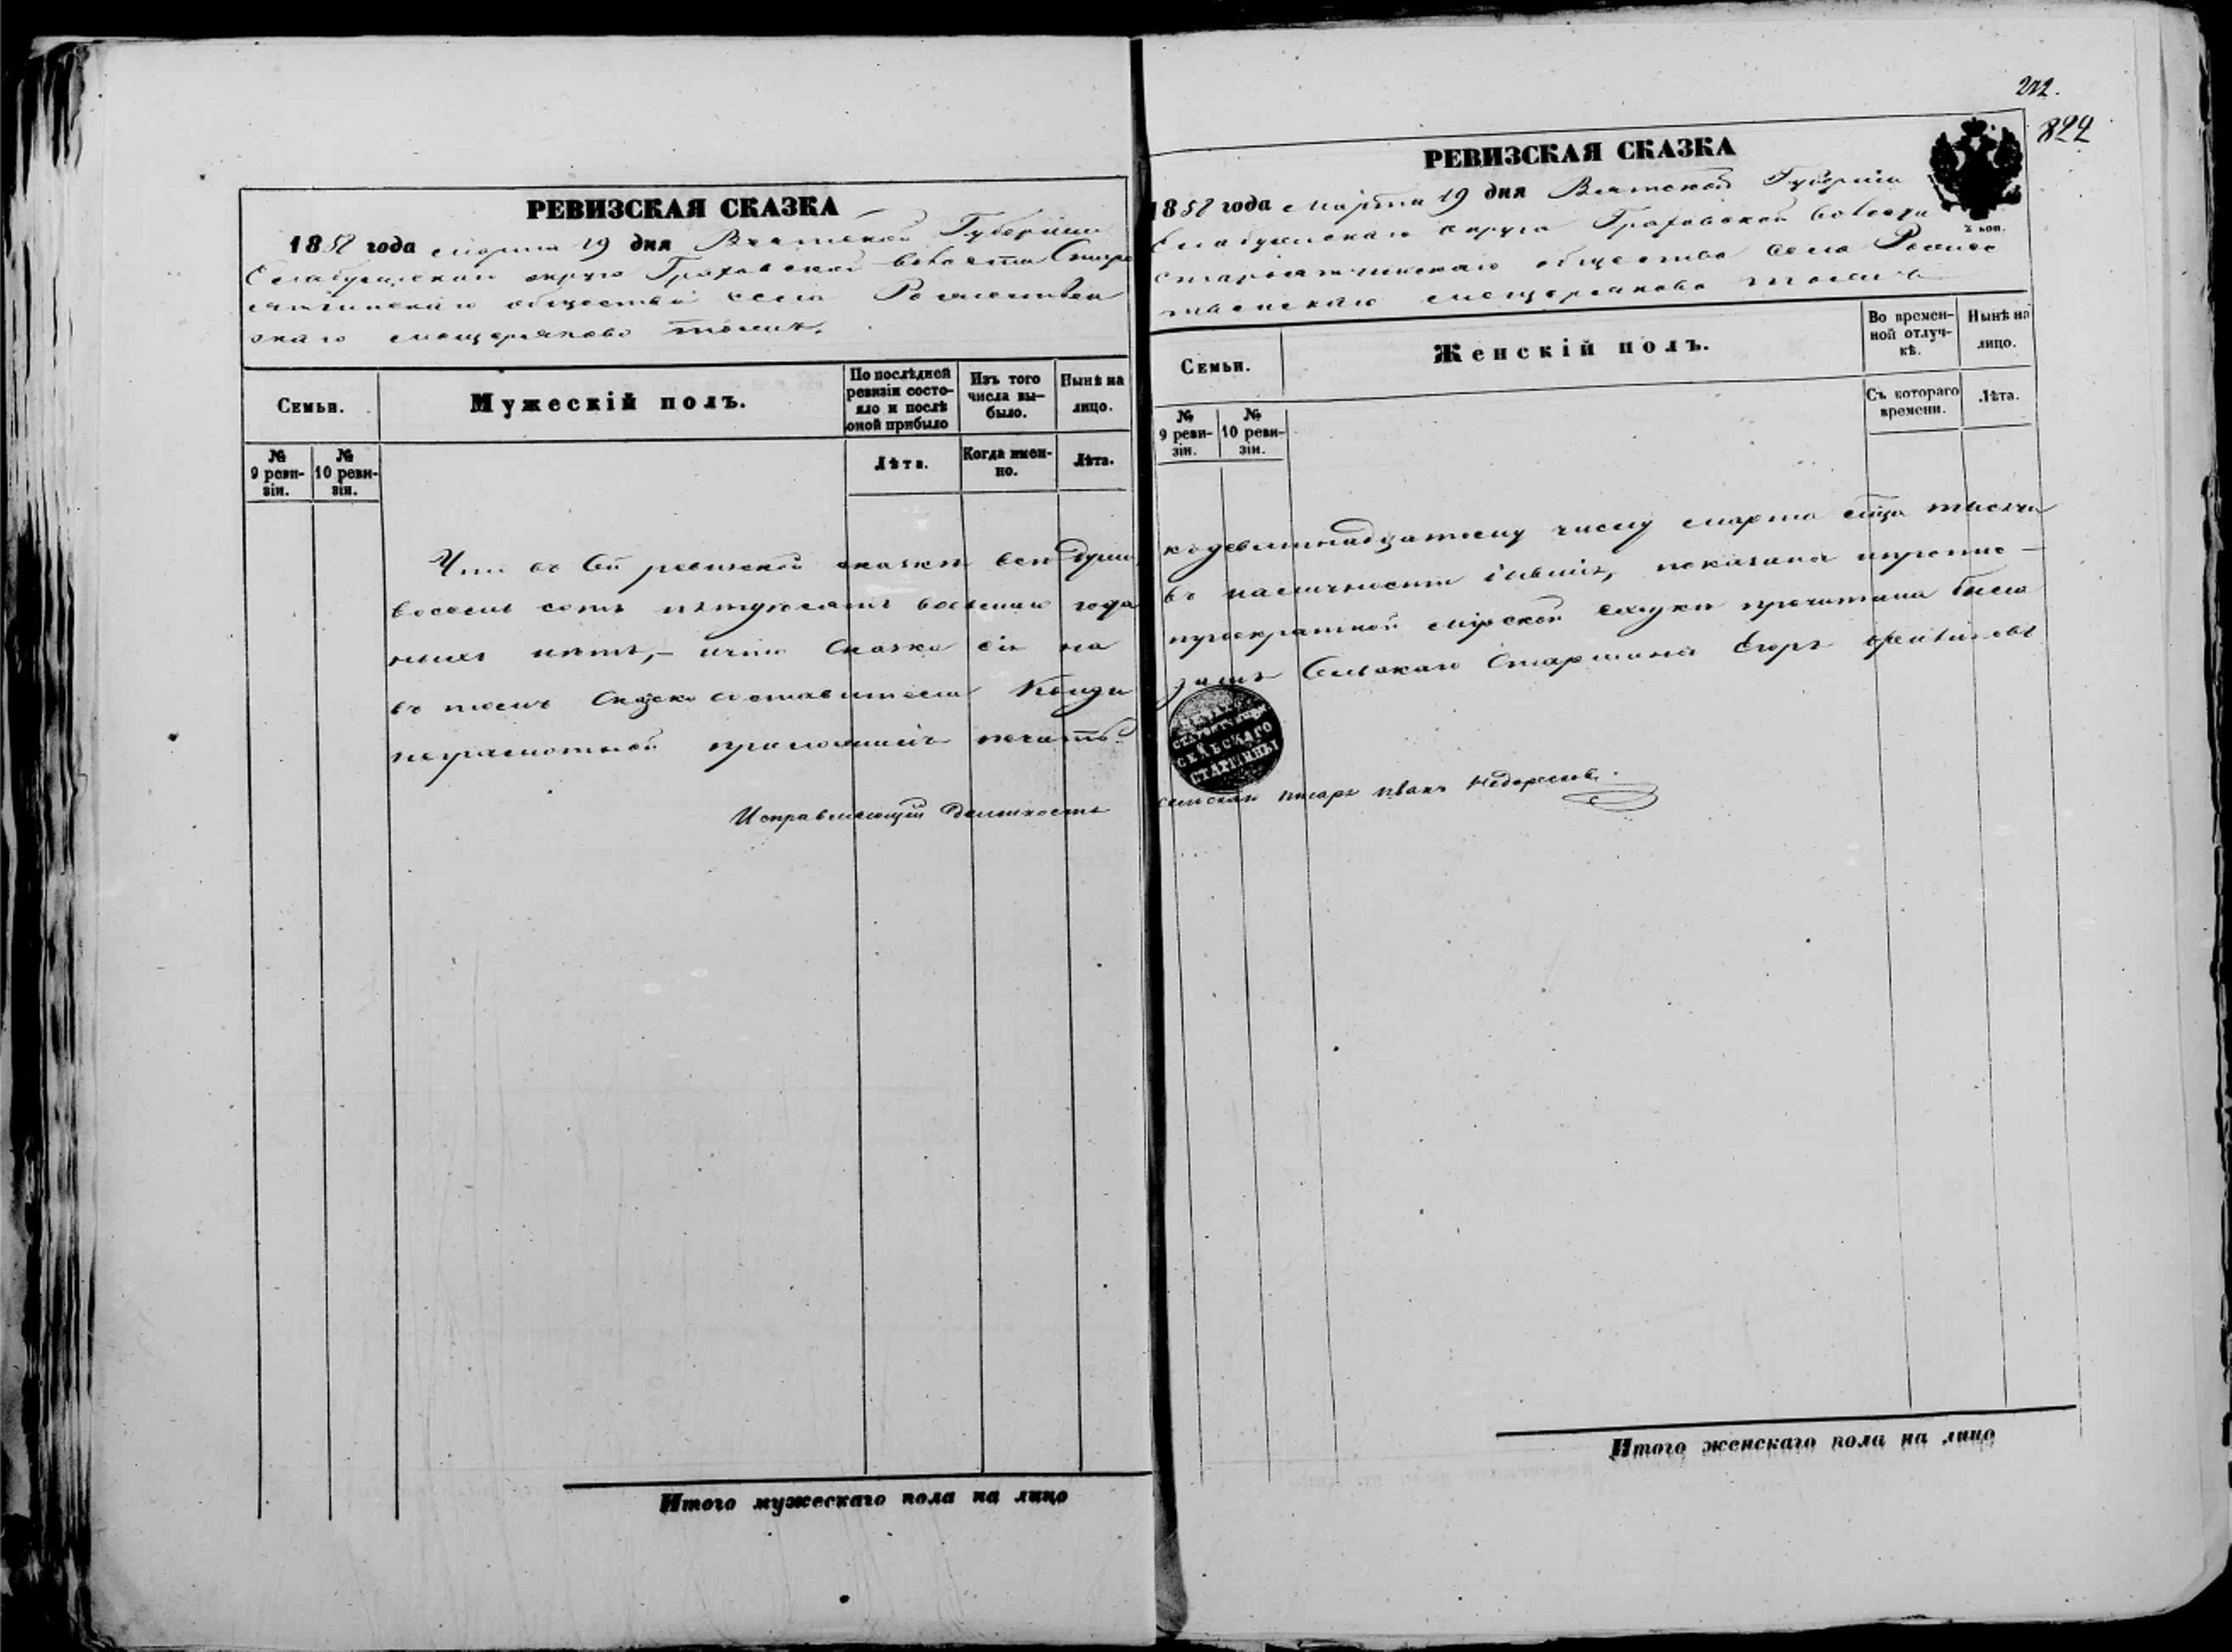 РЕВИЗСКАЯ СКАЗКА
1858 года марта 19 дня Вятской Губернии
Елабужскаго округа Граховской волости Старо
общества села Рождествен
скаго
Семьи.
Мужескій полъ.
По послѣдней ревизіи состояло и послѣ оной прибыло
Изъ того числа вы-
было.
Нынѣ на
лицо.
№
9 реви-
зіи.
№
10 реви-
зіи.
Лѣта.
Когда имен-
но.
Лѣта.
Что въ сей ревизской сказкѣ всѣ души
восемь сотъ пятдесятъ восьмаго года
нихъ нѣтъ, – и что сказка сія на
въ томъ сказко составителя
неграмотной приложилъ печать.
Исправляющій должность
Итого мужескаго пола на лицо
222.
822
РЕВИЗСКАЯ СКАЗКА
1858 года марта 19 дня Вятской Губерніи
Елабужскаго округа Граховской волости
общества села Рождес
твенскаго
2 коп.
Семьи.
Женскій полъ.
Во времен-
ной отлуч-
кѣ.
Нынѣ на
лицо.
№
9 реви-
зіи.
№
10 реви-
зіи.
Съ котораго
времени.
Лѣта.
къ девятнадцатому числу марта мца тысяча
въ наличности показана
мірской сходкѣ прочитана была
Сельскаго Старшина Егоръ
СЕЛЬСКАГО
СТАРШИНЫ
сельскаго писаря Иванъ
Итого женскаго пола на лицо